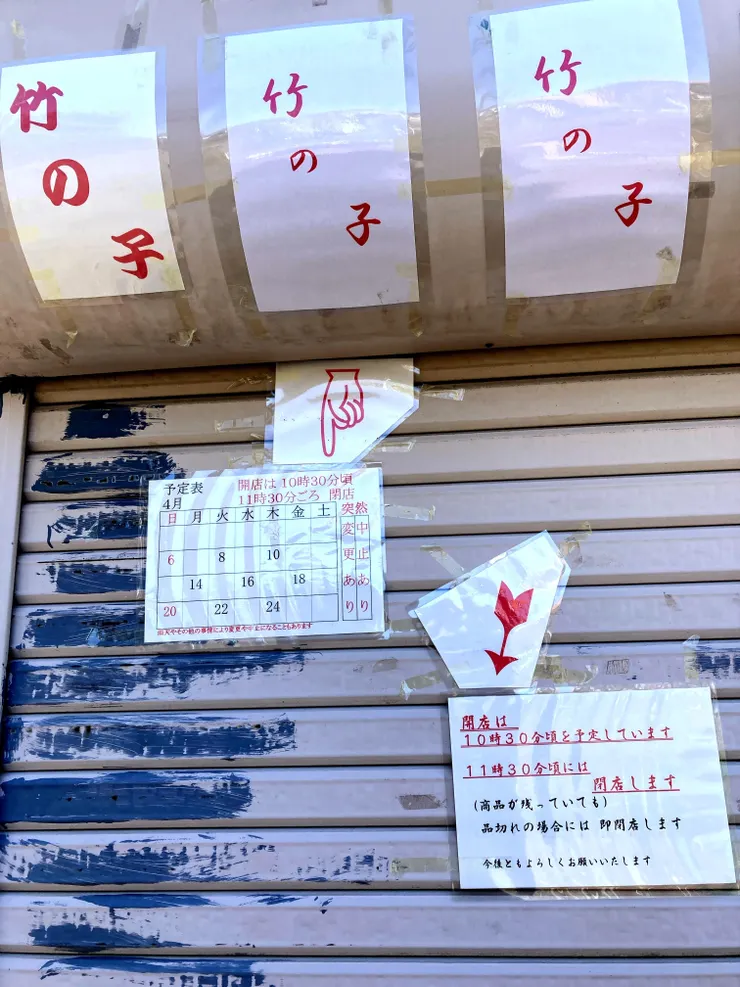 竹の子
竹の子
竹の子
予定表
4月
開店は 10時30分頃
11時30分ごろ 閉店
日 月 火 水 木 金 土
6 8 10
14 16 18
20 22 24
突然
変中
更止
ああ
りり
雨天やその他の事情により変更や中止になることもあります
開店は
10時30分頃を予定しています
11時30分頃には
閉店します
(商品が残っていても)
品切れの場合には 即閉店します
今後ともよろしくお願いいたします